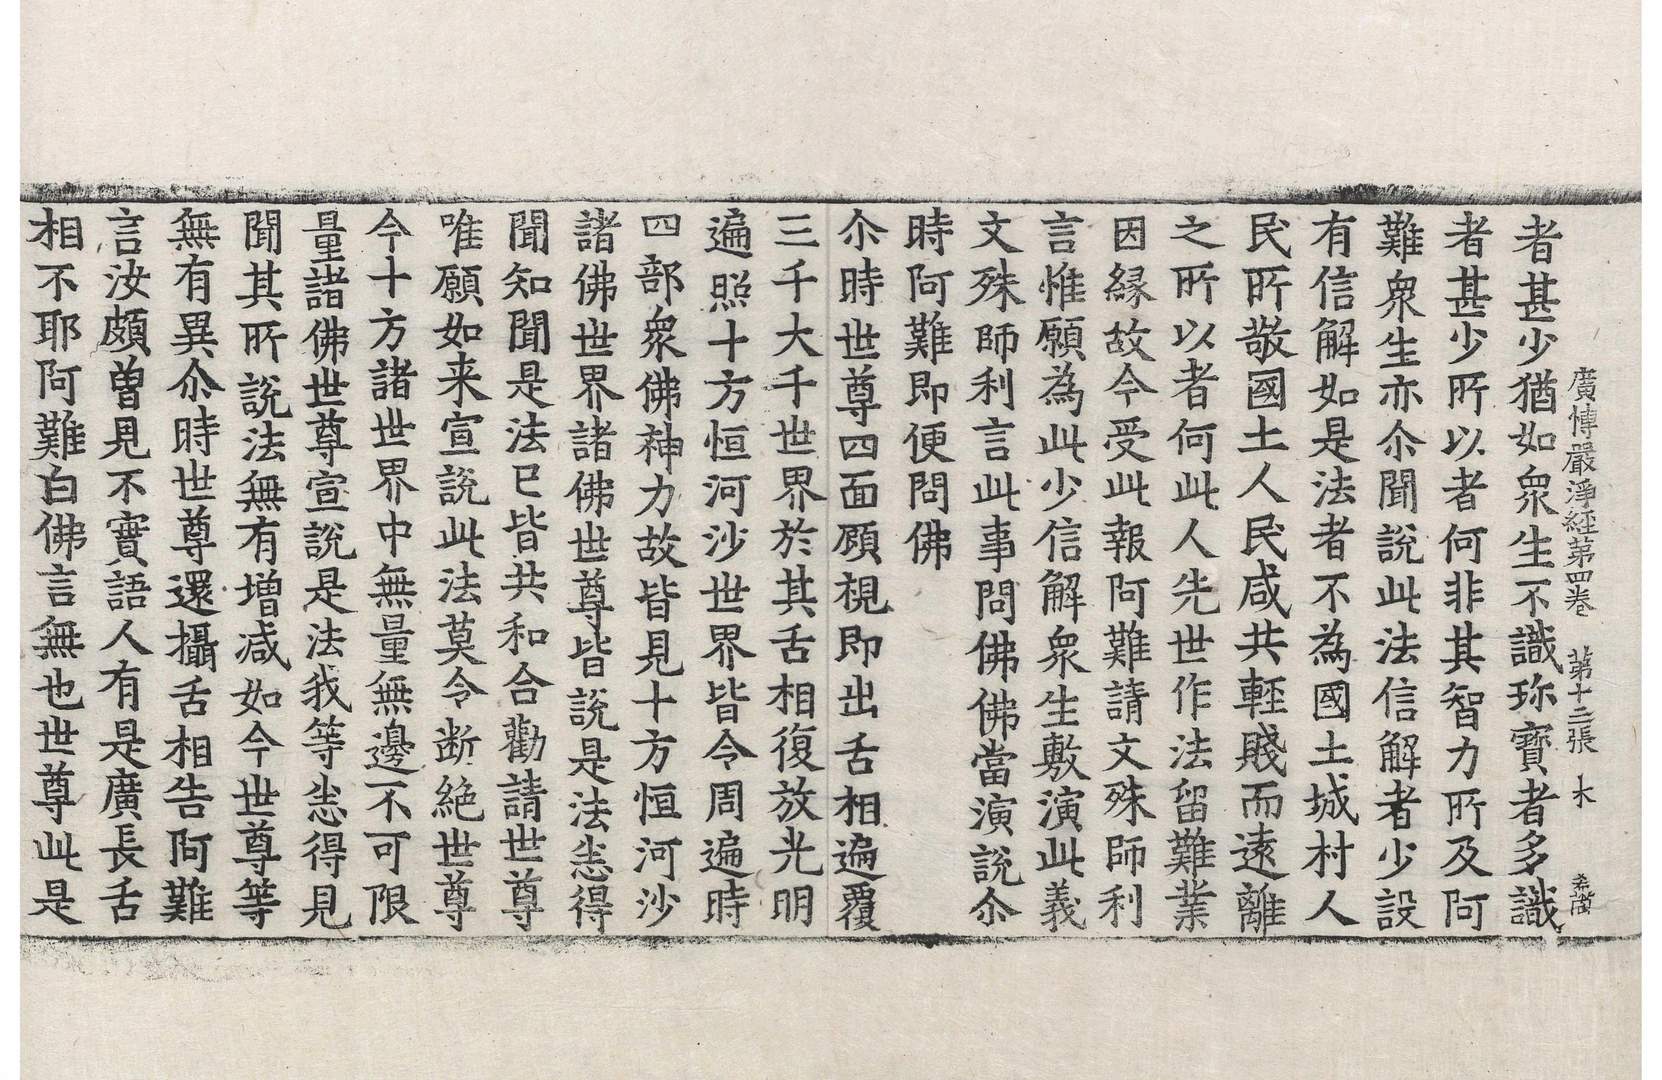 廣博嚴淨經第四卷 第十三張 木
者甚少猶如衆生不識珎寶者多識
者甚少所以者何非其智力所及阿
難衆生亦尒聞說此法信解者少設
有信解如是法者不為國土城村人
民所敬國土人民咸共輕賤而遠離
之所以者何此人先世作法留難業
因緣故今受此報阿難請文殊師利
言惟願為此少信解衆生敷演此義
文殊師利言此事問佛佛當演說尒
時阿難即便問佛
尒時世尊四面顧視即出舌相遍覆
三千大千世界於其舌相復放光明
遍照十方恒河沙世界皆令周遍時
四部衆佛神力故皆見十方恒河沙
諸佛世界諸佛世尊皆說是法悉得
聞知聞是法已皆共和合勸請世尊
唯願如来宣說此法莫令断絶世尊
今十方諸世界中無量無邊不可限
量諸佛世尊宣說是法我等悉得見
聞其所說法無有增減如今世尊等
無有異尒時世尊還攝舌相告阿難
言汝頗曽見不實語人有是廣長舌
相不耶阿難白佛言無也世尊此是